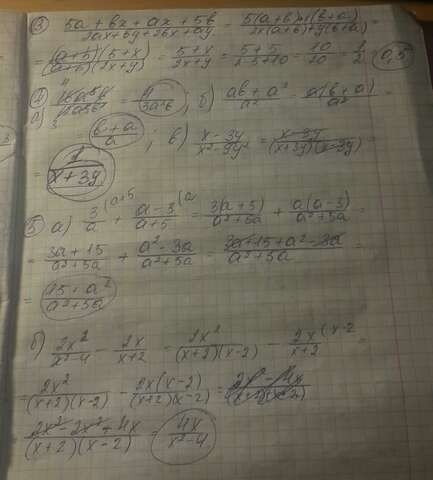 ③ (5a + bx + ax + 5b)/(2ax + by + 2bx + ay) = (5(a+b)+x(b+a))/(2x(a+b)+y(b+a)) =
= ((a+b)(5+x))/((a+b)(2x+y)) = (5+x)/(2x+y) = (5+5)/(2·5+10) = 10/20 = 1/2 = 0,5
= 4/(3a²b) ; б) (ab + a²)/a² = (a(b+a))/a² =
= (b+a)/a ; в) (x-3y)/(x²-9y²) = (x-3y)/((x+3y)(x-3y)) =
= 1/(x+3y)
⑤ а) 3/a (a+5 + (a-3)/(a+5) (a = (3(a+5))/(a²+5a) + (a(a-3))/(a²+5a) =
= (3a+15)/(a²+5a) + (a²-3a)/(a²+5a) = (3a+15+a²-3a)/(a²+5a) =
= (15+a²)/(a²+5a)
б) 2x²/(x²-4) - 2x/(x+2) = 2x²/((x+2)(x-2)) - 2x/(x+2) (x-2
= 2x²/((x+2)(x-2)) - (2x(x-2))/((x+2)(x-2)) =
(2x²-2x²+4x)/((x+2)(x-2)) = 4x/(x²-4)